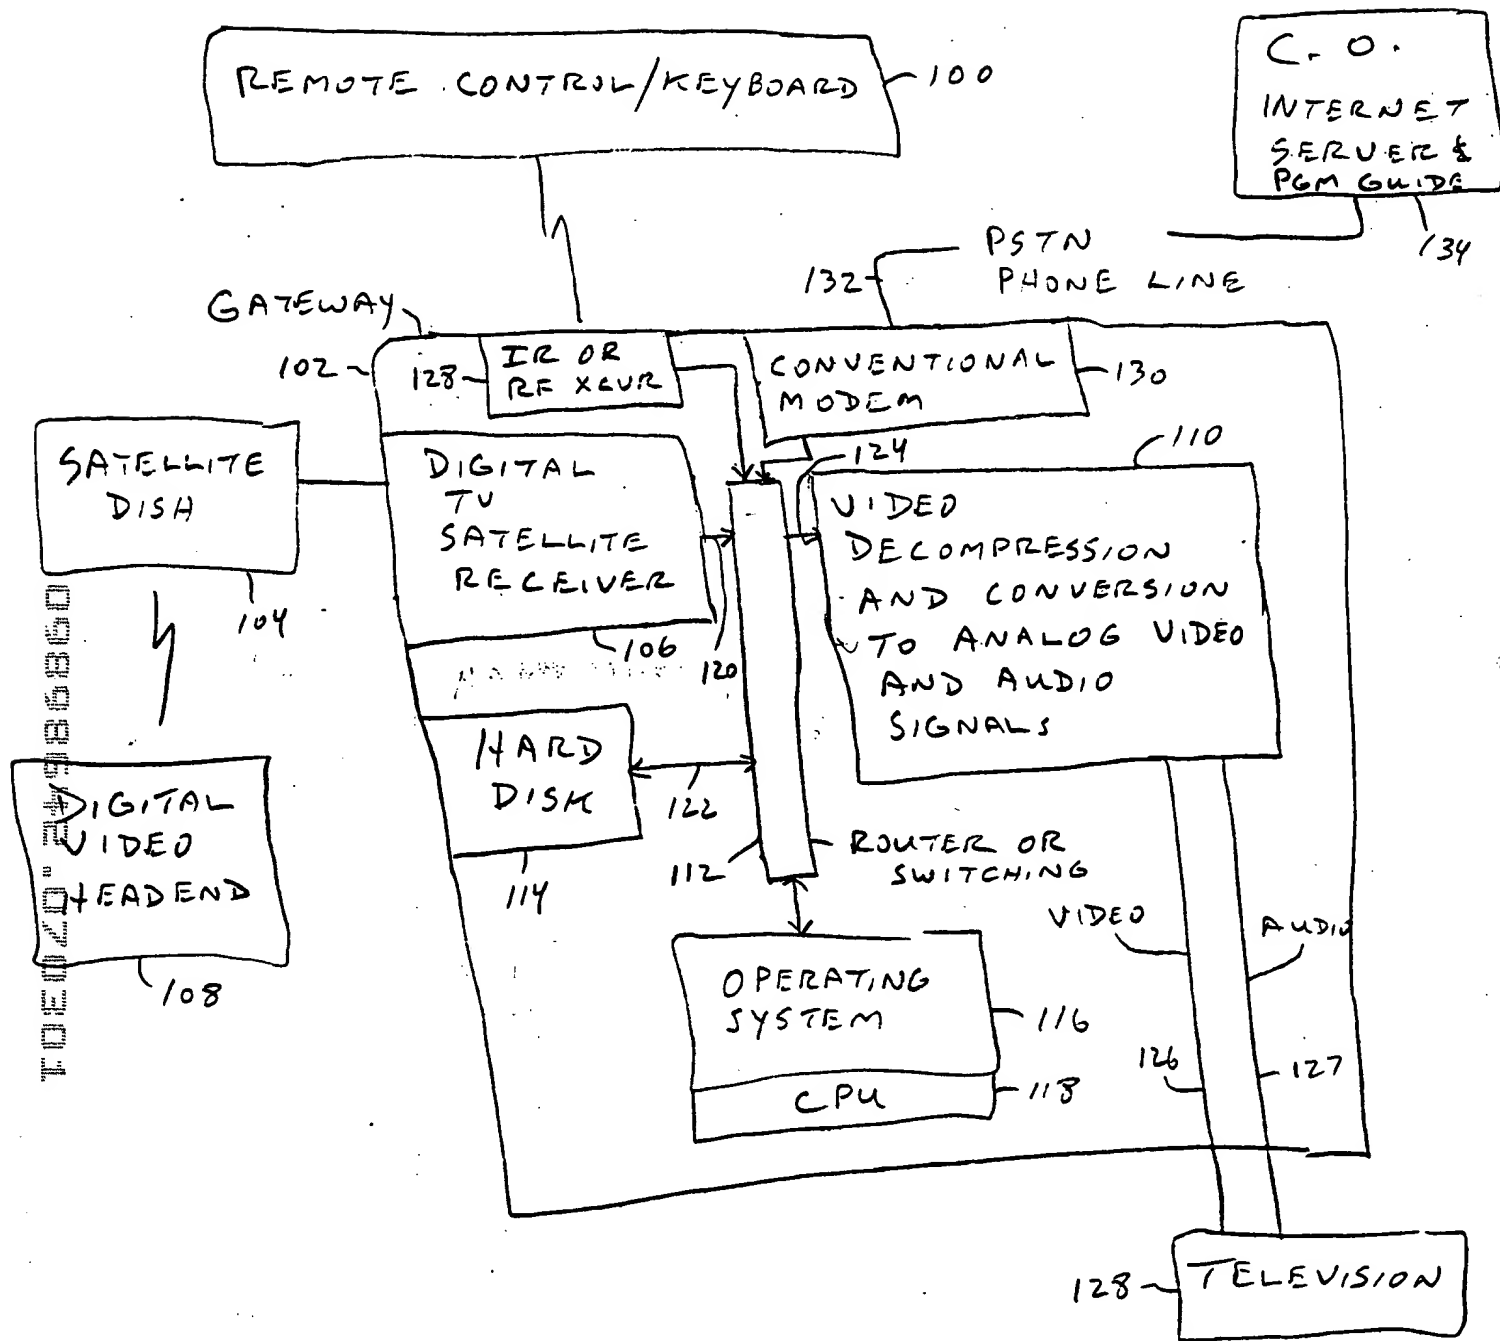 REMOTE CONTROL/KEYBOARD
100
C. O.
INTERNET
SERVER &
PGM GUIDE
134
PSTN
PHONE LINE
132
GATEWAY
102
128
IR OR
RF XCVR
CONVENTIONAL
MODEM
130
SATELLITE
DISH
104
DIGITAL
TV
SATELLITE
RECEIVER
106
120
124
110
VIDEO
DECOMPRESSION
AND CONVERSION
TO ANALOG VIDEO
AND AUDIO
SIGNALS
HARD
DISK
114
122
112
ROUTER OR
SWITCHING
DIGITAL
VIDEO
HEADEND
108
OPERATING
SYSTEM
116
CPU
118
VIDEO
AUDIO
126
127
128
TELEVISION
09898542.070301